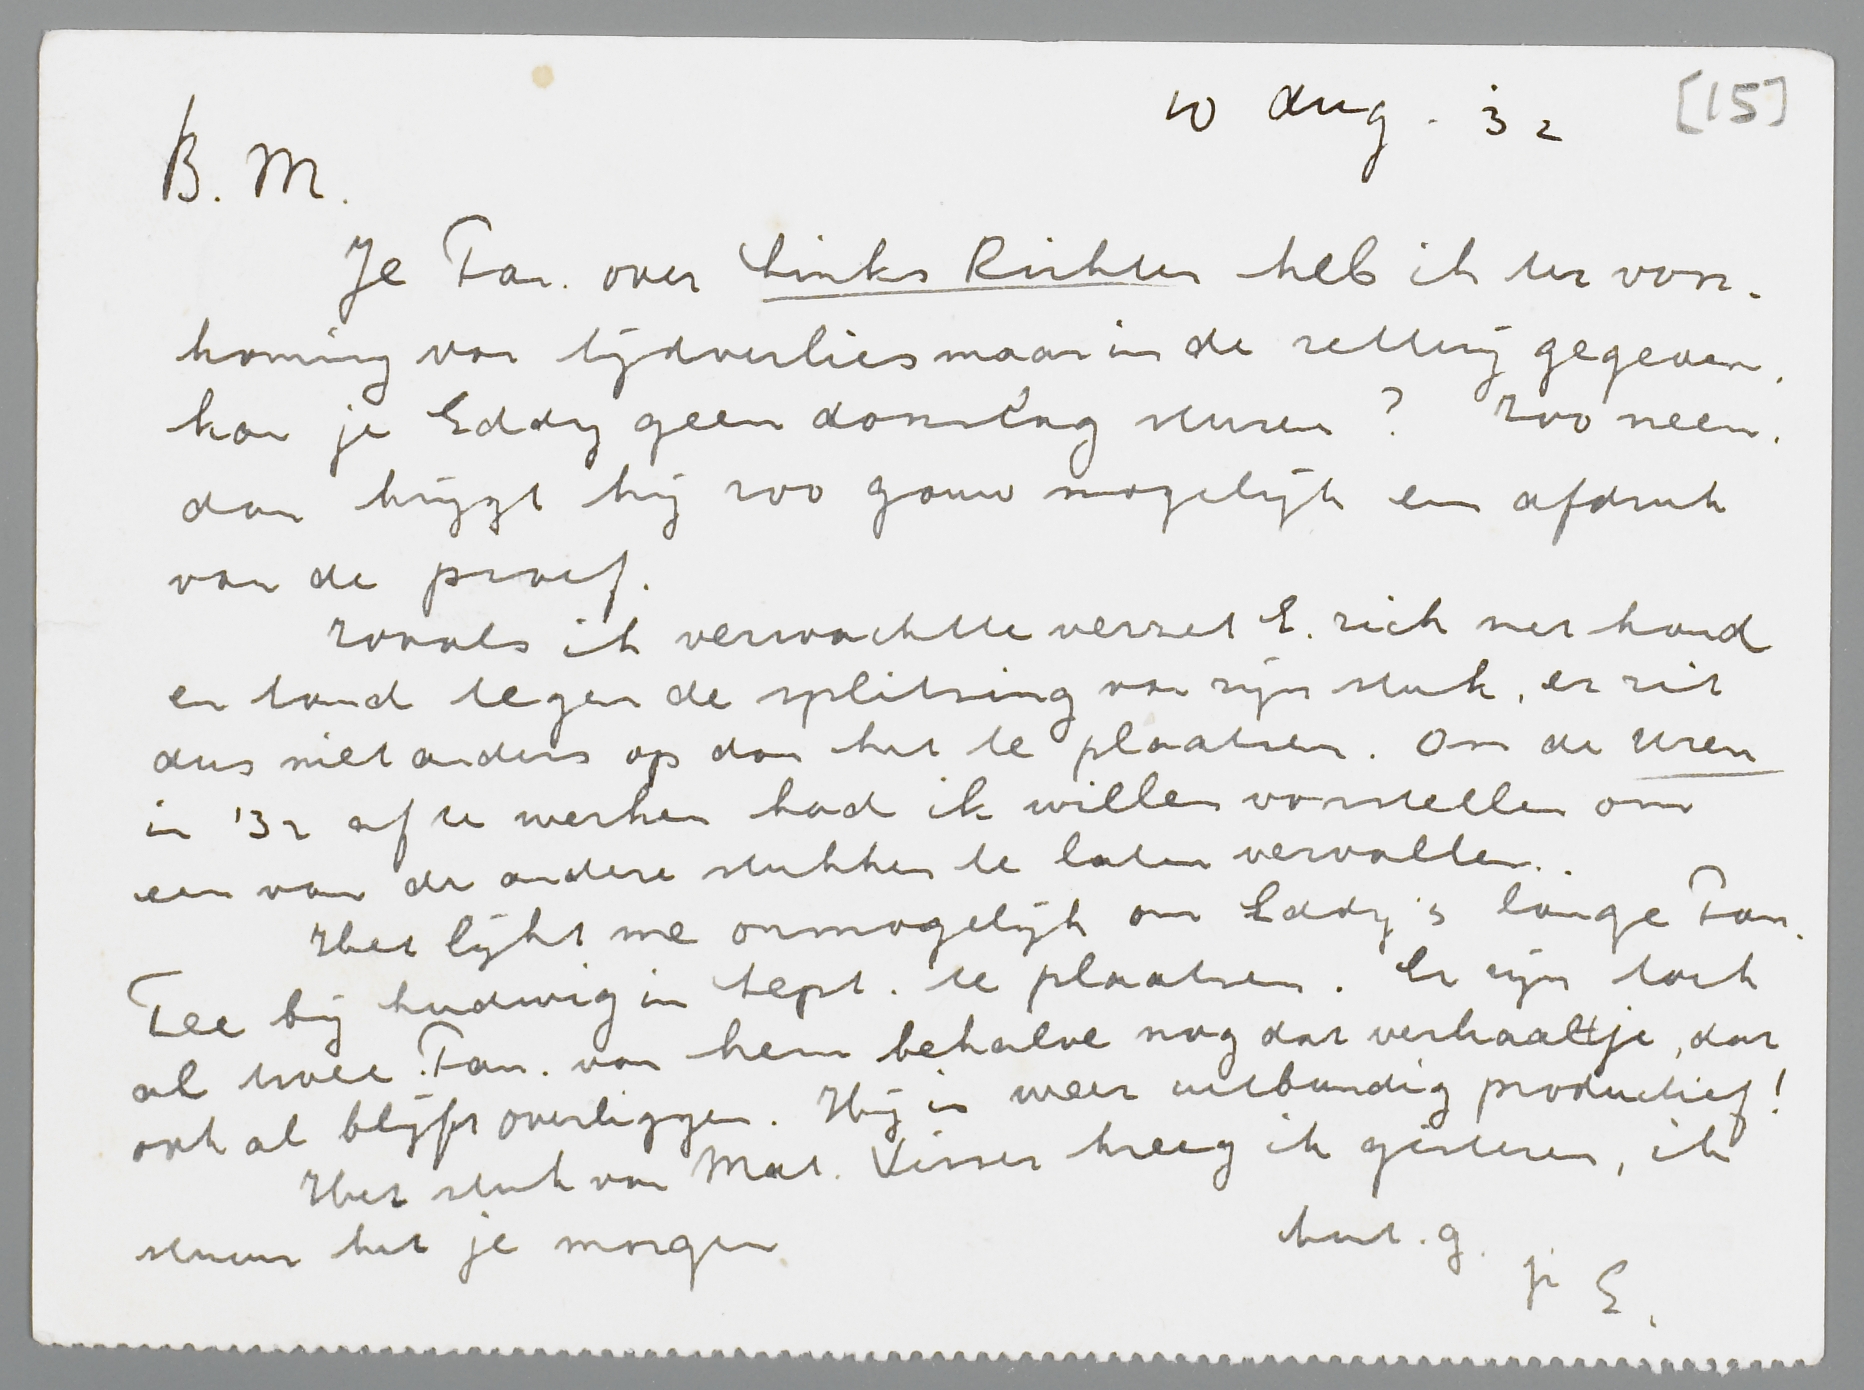 10 Aug. '32 [15]
B. M.
Je Pan. over Links Richten heb ik ter voor-
koming van tijdverlies maar in de zetterij gegeven.
kan je Eddy geen doorslag sturen? Zoo neen,
dan krijgt hij zoo gauw mogelijk een afdruk
van de proef.
Zooals ik verwachtte verzet E. zich met hand
en tand tegen de splitsing van zijn stuk, er zit
dus niet anders op dan het te plaatsen. Om de Uren
in '32 af te werken had ik willen voorstellen om
een van de andere stukken te laten vervallen.
Het lijkt me onmogelijk om Eddy's lange Pan.
Tee bij Ludwig in Sept. te plaatsen. Er zijn toch
al twee Pan. van hem behalve nog dat verhaaltje, dat
ook al blijft overliggen. Hij is weer uitbundig productief!
Het stuk van Mat. Visser kreeg ik gisteren, ik
stuur het je morgen
hart. g.
je E.